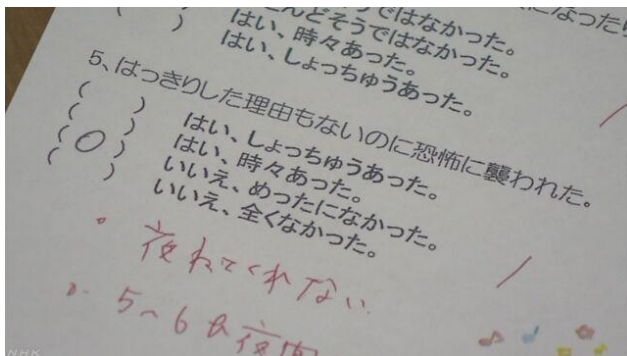 になったり
うではなかった。
んどそうではなかった。
はい、時々あった。
はい、しょっちゅうあった。
5、はっきりした理由もないのに恐怖に襲われた。
はい、しょっちゅうあった。
はい、時々あった。
いいえ、めったになかった。
いいえ、全くなかった。
夜ねてくれない
5~6 夜間
NHK